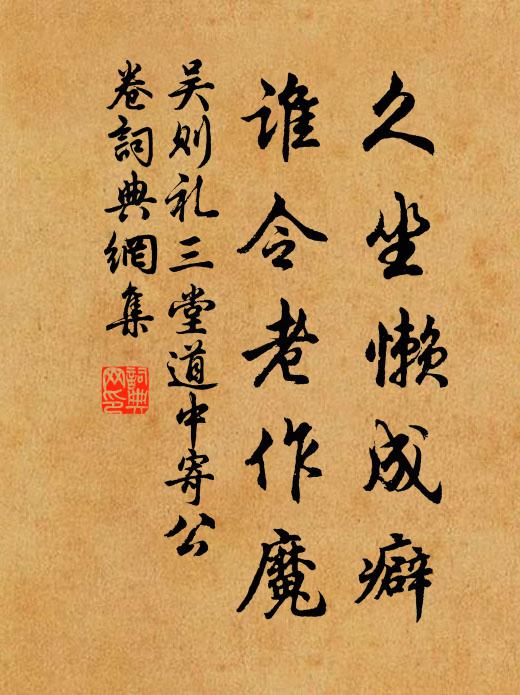 久坐懒成癖
谁令老作魔
吴则礼三堂道中寄公
卷詞典網集
詞典網印